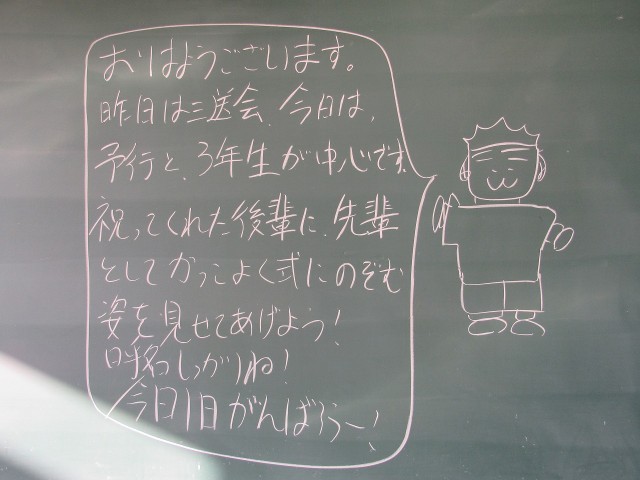 おはようございます。
昨日は三送会、今日は、
予行と、3年生が中心です。
祝ってくれた後輩に、先輩
としてかっこよく式にのぞむ
姿を見せてあげよう!
呼名しっかりね!
今日1日がんばろう〜!